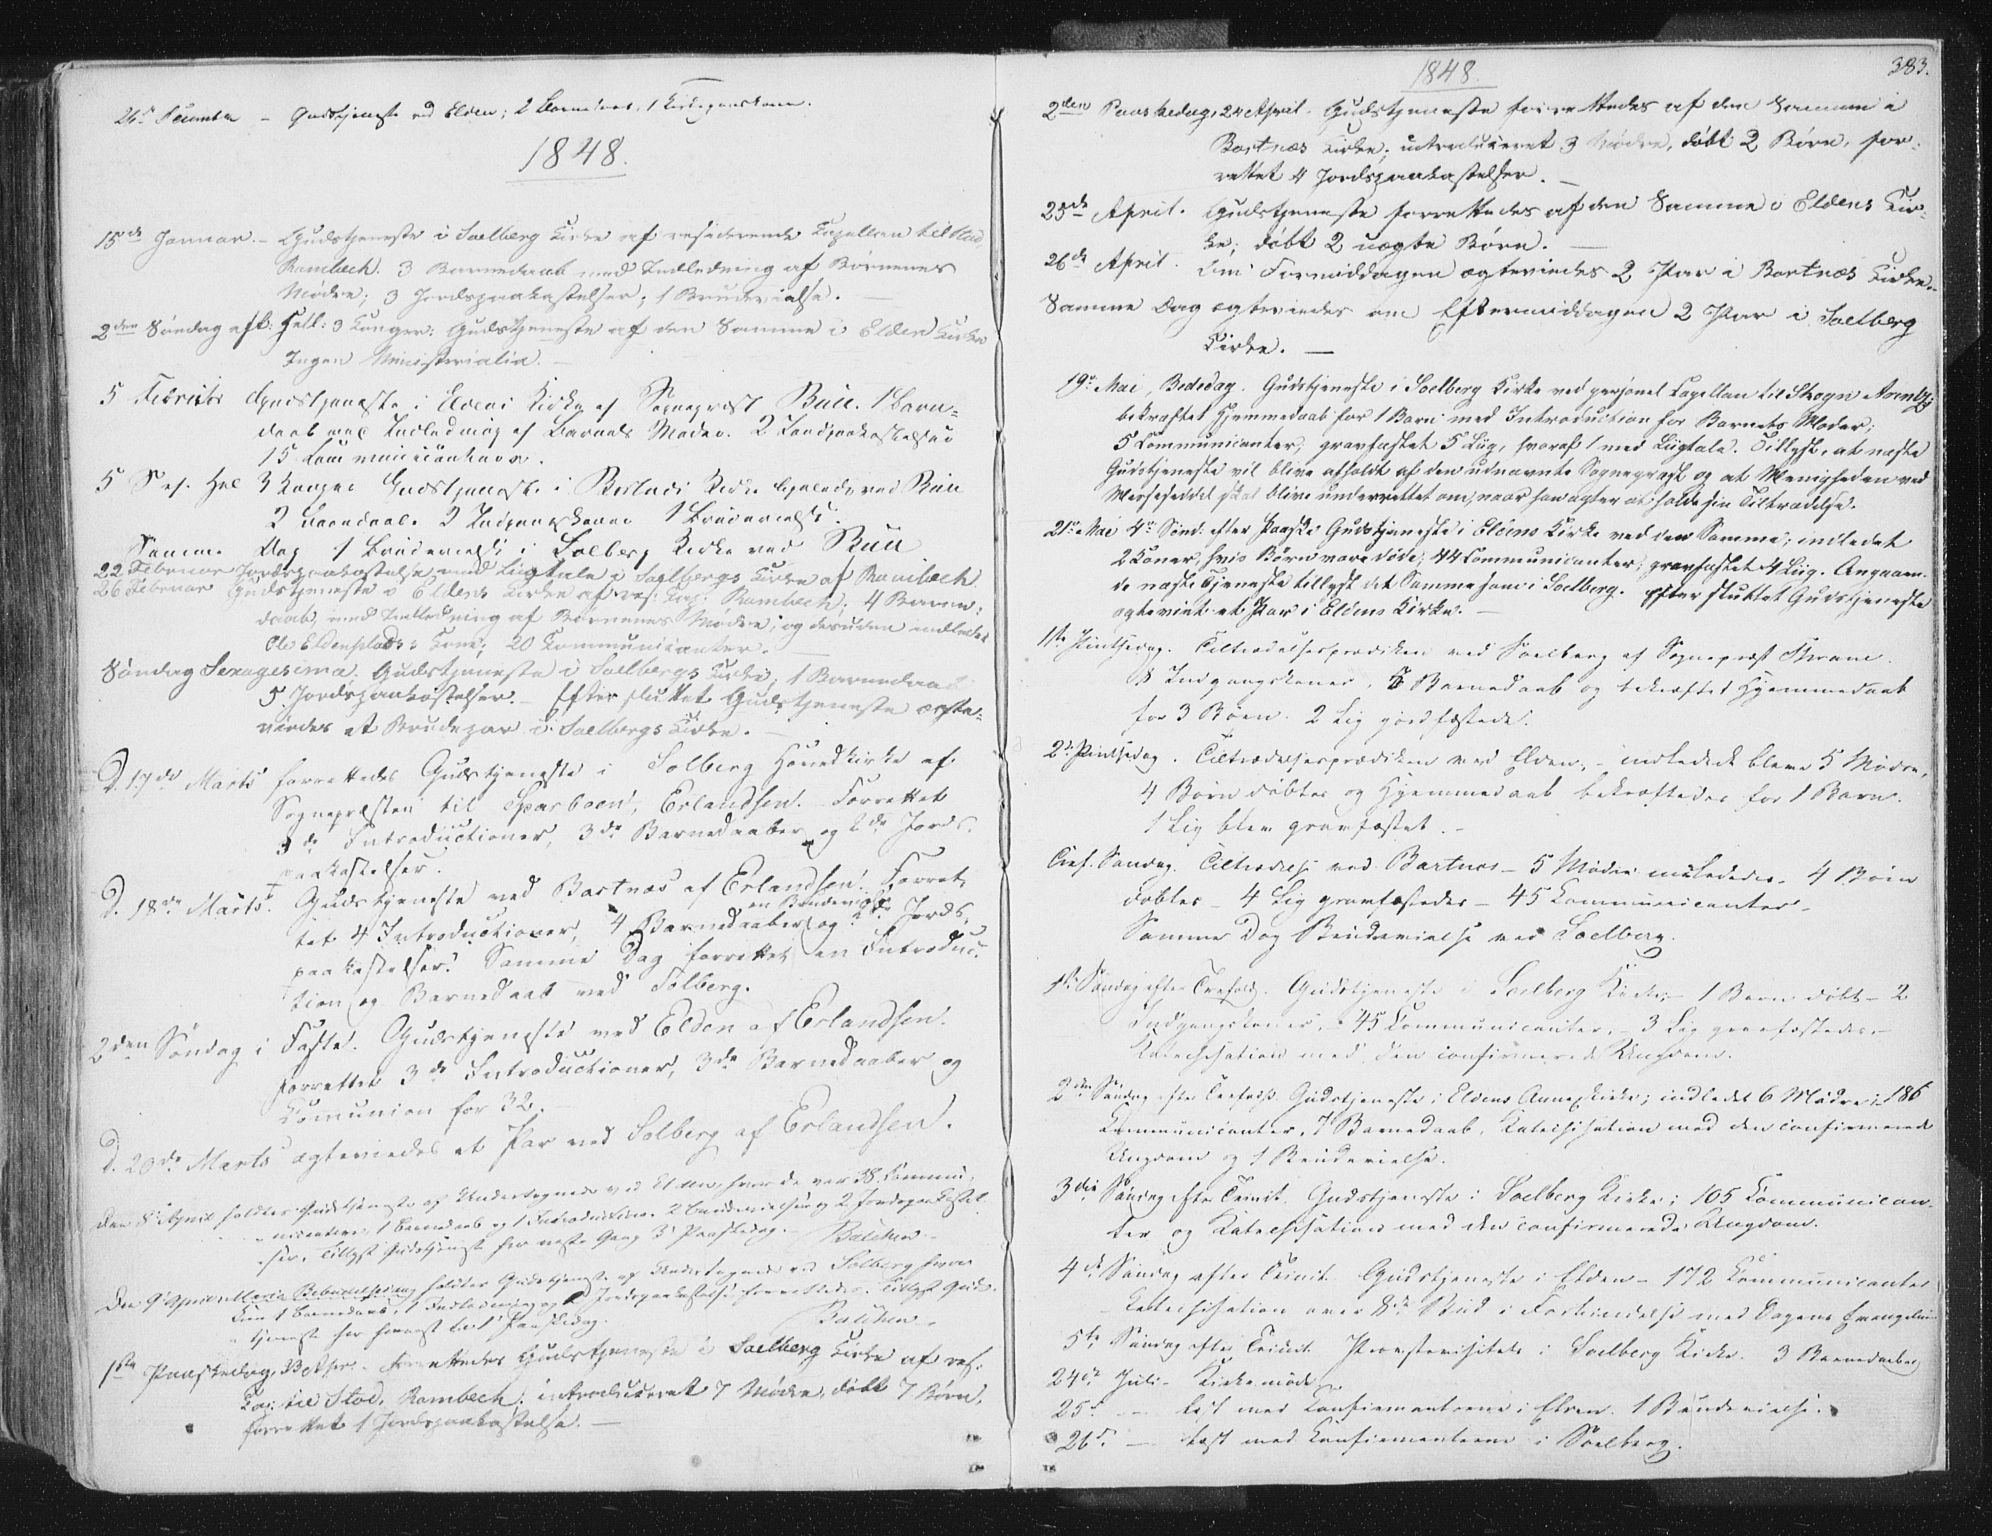 26de December - Gudstjeneste ved Elden; 2 Barnedaab, 1 Kirkegangskone.
1848.
15de Januar. - Gudstjeneste i Soelberg Kirke af residerende Kapellan til Stod
Rambech. 3 Barnedaab med Indledning af Børnenes
Mødre; 3 Jordspaakastelser; 1 Brudevielse. -
2den Søndag eft. Hell: 3 Konger: Gudstjeneste af den Samme i Elden Kirke
Ingen Ministerialia. -
5 Februar Gudstjeneste i Eldens Kirke af Sognepræst Buee. 1 Barne-
daab med Indledning af Barnets Moder. 2 Jordpaakastelser
15 Communicantere.
5 S ef. Hel 3 Konger Gudstjeneste i Kirke ved Buee
2 Barnedaab. 2 Indgangskoner 1 Brudevielse.
Samme Dag 1 Brudevielse i Solberg Kirke ved Buee
22 Februar Jordspaakastelse med Liigtale i Soelbergs Kirke af Rambech.
26 Februar Gudstjeneste i Eldens Kirke af res. Cap. Rambech; 4 Barne-
daab, med Indledning af Børnenes Mødre; og desuden indledet
Ole Eldensplads's Kone; 20 Kommunicanter. -
Søndag Sexagesima. Gudstjeneste i Soelbergs Kirke; 1 Barnedaab
5 Jordspaakastelser. - Efter sluttet Gudstjeneste ægte-
viedes et Brudepar i Soelbergs Kirke. -
D. 17de Marts forrettedes Gudstjeneste i Solberg Hovedkirke af
Sognepræsten til Sparboen, Erlandsen. Forrettet
3de Introductioner, 3de Barnedaaber og 2de Jords-
paakastelser.
D. 18de Marts. Gudstjeneste ved Bartnæs af Erlandsen. Forret-
en Brudevielse
tet 4 Introductioner, 4 Barnedaaber og 2de Jords-
paakastelser. Samme Dag forrettet en Introduc-
tion og Barnedaab ved Solberg.
2den Søndag i Faste. Gudstjeneste ved Elden af Erlandsen.
forrettet 3de Introductioner, 3de Barnedaaber og
Comunion for 32.
D. 20de Marts ægteviedes et Par ved Solberg af Erlandsen.
Den 8de April holdtes Gudstjeneste af Undertegnede ved Elden, hvor der var 38 Commu-
nicantere, 1 Barnedaab og 1 Introduction. 2 Brudevielser og 2 Jordspaakastel-
ser. Tillyst Gudstjeneste her næste Gang 3die Paaskedag. -
Den 9de April Mariæ Bebudelsesdag holdtes Gudstjeneste af Undertegnede ved Solberg hvor
1 Barnedaab, 1 Indledning og Jordspaakastelse forrettedes. Tillyst Guds-
tjeneste her 1ste Paaskedag.
1ste Paaskedag, 23 Apr. - Forrettedes Gudstjeneste i Soelberg Kirke af res:
Cap: til Stod, Rambech; introduceret 7 Mødre, døbt 7 Børn,
forrettet 1 Jordspaakastelse. -
1848.
383.
2den Paaskedag, 24 April. Gudstjeneste forrettedes af den Samme i
Bartnæs Kirke; introduceret 3 Mødre, døbt 2 Børn, for-
rettet 4 Jordspaakastelser. -
25de April. Gudstjeneste forrettedes af den Samme i Eldens Kir-
ke; døbt 2 uægte Børn. -
26de April. Om Formiddagen ægteviedes 2 Par i Bartnæs Kirke. -
Samme Dag ægteviedes om Eftermiddagen 2 Par i Soelberg
Kirke. -
19de Mai, Bededag. Gudstjeneste i Soelberg Kirke ved personel Capellan til Skogn Arentz;
bekræftet Hjemmedaab for 1 Barn med Introduction for Barnets Moder;
5 Communicanter, gravfæstet 5 Liig, hvoraf 1 med Liigtale. Tillyst, at næste
Gudstjeneste vil blive afholdt af den udnævnte Sognepræst og at Menigheden ved
Messeseddel skal blive underrettet om, naar han agter at holde sin Tiltrædelse.
21de Mai 4de Sønd. efter Paaske Gudstjeneste i Eldens Kirke ved den Samme; indledet
2 Koner, hvis Børn vare døde; 44 Communicanter; gravfæstet 4 Liig. Angaaen-
de næste Tjeneste tillyst det Samme som i Soelberg. Efter sluttet Gudstjeneste
ægteviet et Par i Eldens Kirke. -
1ste Pintsedag. Tiltrædelsesprædiken ved Soelberg af Sognepræst
8 Indgangskoner, 5 Barnedaab og bekræftet Hjemmedaab
for 3 Børn. 2 Lig jordfæstede.
2den Pintsedag. Tiltrædelsesprædiken ved Elden. - indledede bleve 5 Mødre,
4 Børn døbtes og Hjemmedaab bekræftedes for 1 Barn.
1 Lig blev gravfæstet. -
Tref. Søndag. Tiltrædelse ved Bartnæs - 5 Mødre indlededes. 4 Børn
døbtes - 4 Lig gravfæstedes - 45 Kommunicanter. -
Samme Dag Brudevielse ved Soelberg.
1ste Søndag efter Trefold. Gudstjeneste i Soelberg Kirke, - 1 Barn døbt - 2
Indgangskoner, - 45 Communicanter. - 3 Lig gravfæstedes. -
Katechisation med den confirmerede Ungdom.
2den Søndag efter Trefold. Gudstjeneste i Eldens Annexkirke; indledet 6 Mødre; 186
Kommunicanter. 7 Barnedaab. Katechisation med den confirmerede
Ungdom og 1 Brudevielse.
3die Søndag efter Trinit. Gudstjeneste i Soelberg Kirke; 105 Communican-
ter og Katechisation med den confirmerede Ungdom.
4de Søndag efter Trinit Gudstjeneste i Elden - 172 Kommunicanter
Katechisation over 8de Bud i Forbindelse med Dagens Evangelium
5te Søndag efter Trinit Provstevisitats i Soelberg Kirke. 3 Barnedaaber
24de Juli - Kirkemøde
25de - - læst med Confirmanterne i Elden. 1 Brudevielse.
26de - læst med Confirmanterne i Soelberg.